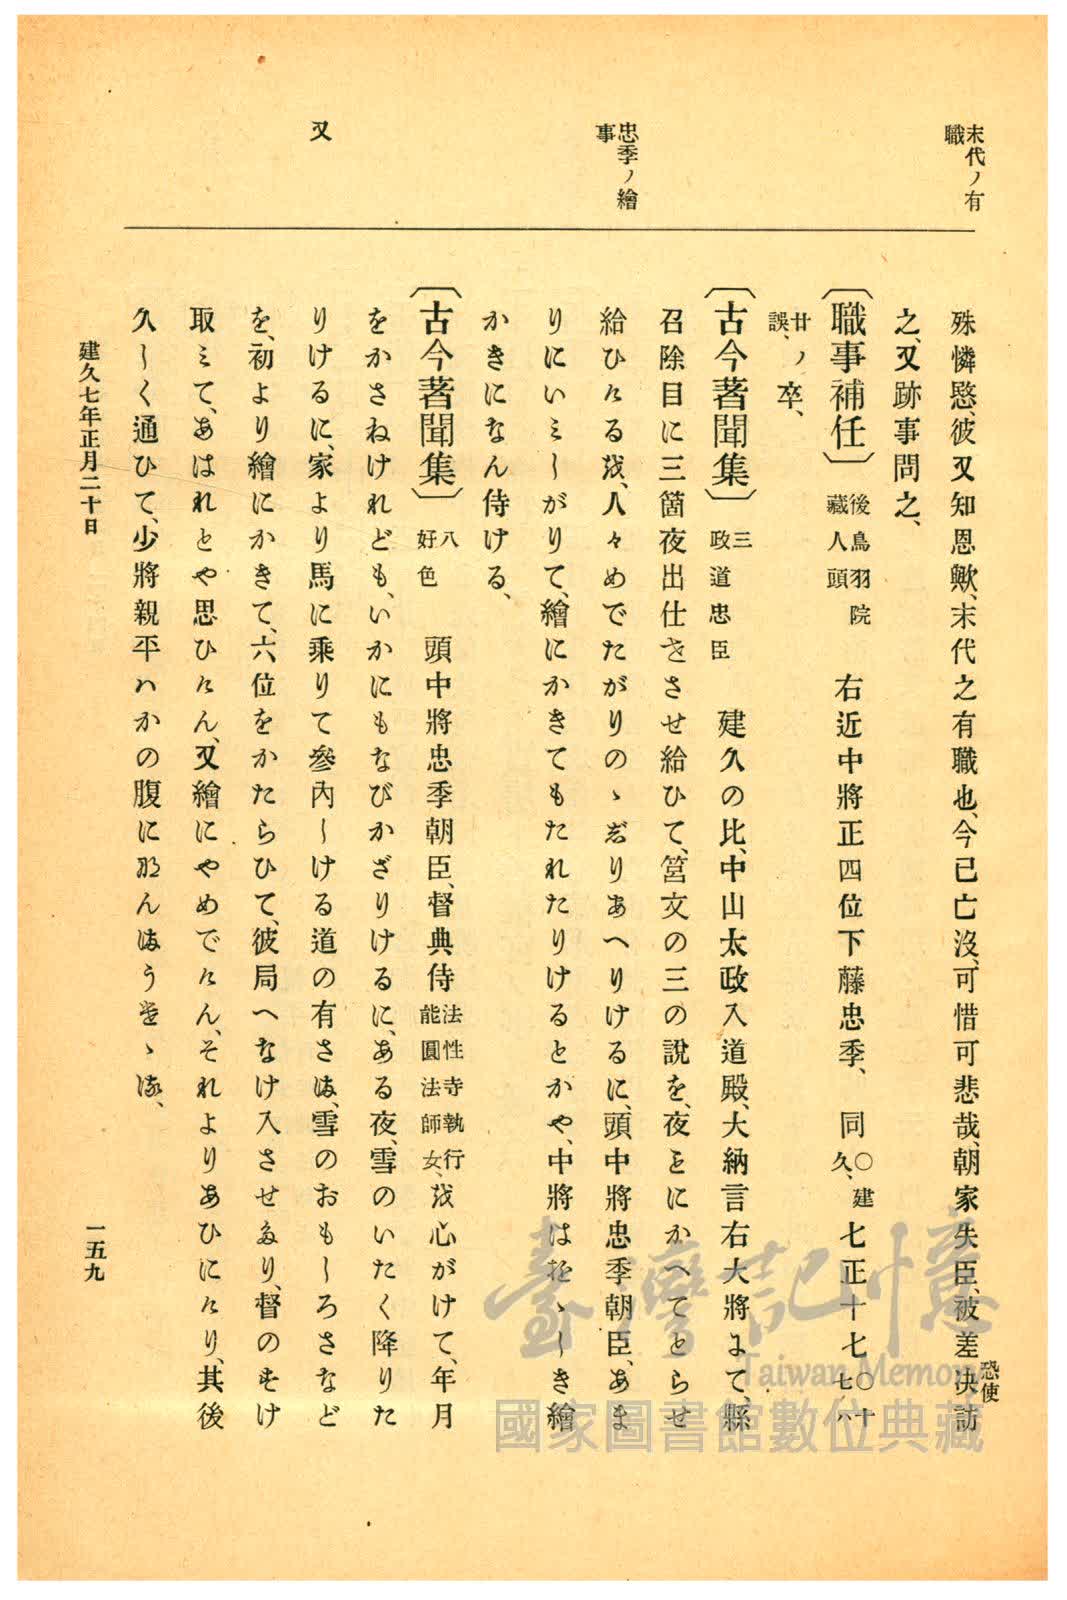 末代ノ有
職
忠季ノ繪
事
又
殊憐愍、彼又知恩歟、末代之有職也、今已亡沒、可惜可悲哉、朝家失臣、被差决訪
恐使
之、又跡事問之、
〔職事補任〕後鳥羽院藏人頭 右近中將正四位下藤忠季、同〇建久、七正十七〇十七ノハ
廿ノ誤、卒、
〔古今著聞集〕三政道忠臣 建久の比、中山太政入道殿、大納言右大將よて、縣
召除目に三箇夜出仕せさせ給ひて、筥文の三の說を、夜ことにかへてとらせ
給ひける越、人々めでたがりのゝしりあへりけるに、頭中將忠季朝臣、あま
りにいミしがりて、繪にかきてもたれたりけるとかや、中將はをゝしき繪
かきになん侍ける、
〔古今著聞集〕八好色 頭中將忠季朝臣、督典侍法性寺執行能圓法師女、越心がけて、年月
をかさねけれども、いかにもなびかざりけるに、ある夜、雪のいたく降りた
りけるに、家より馬に乘りて參內しける道の有さま、雪のおもしろさなど
を、初より繪にかきて、六位をかたらひて、彼局へなけ入させたり、督のすけ
取ミて、あはれとや思ひけん、又繪にやめでけん、それよりあひにけり、其後
久しく通ひて、少將親平ハかの腹になんまうせゝる、
建久七年正月二十日
一五九
臺灣記憶
Taiwan Memory
國家圖書館數位典藏